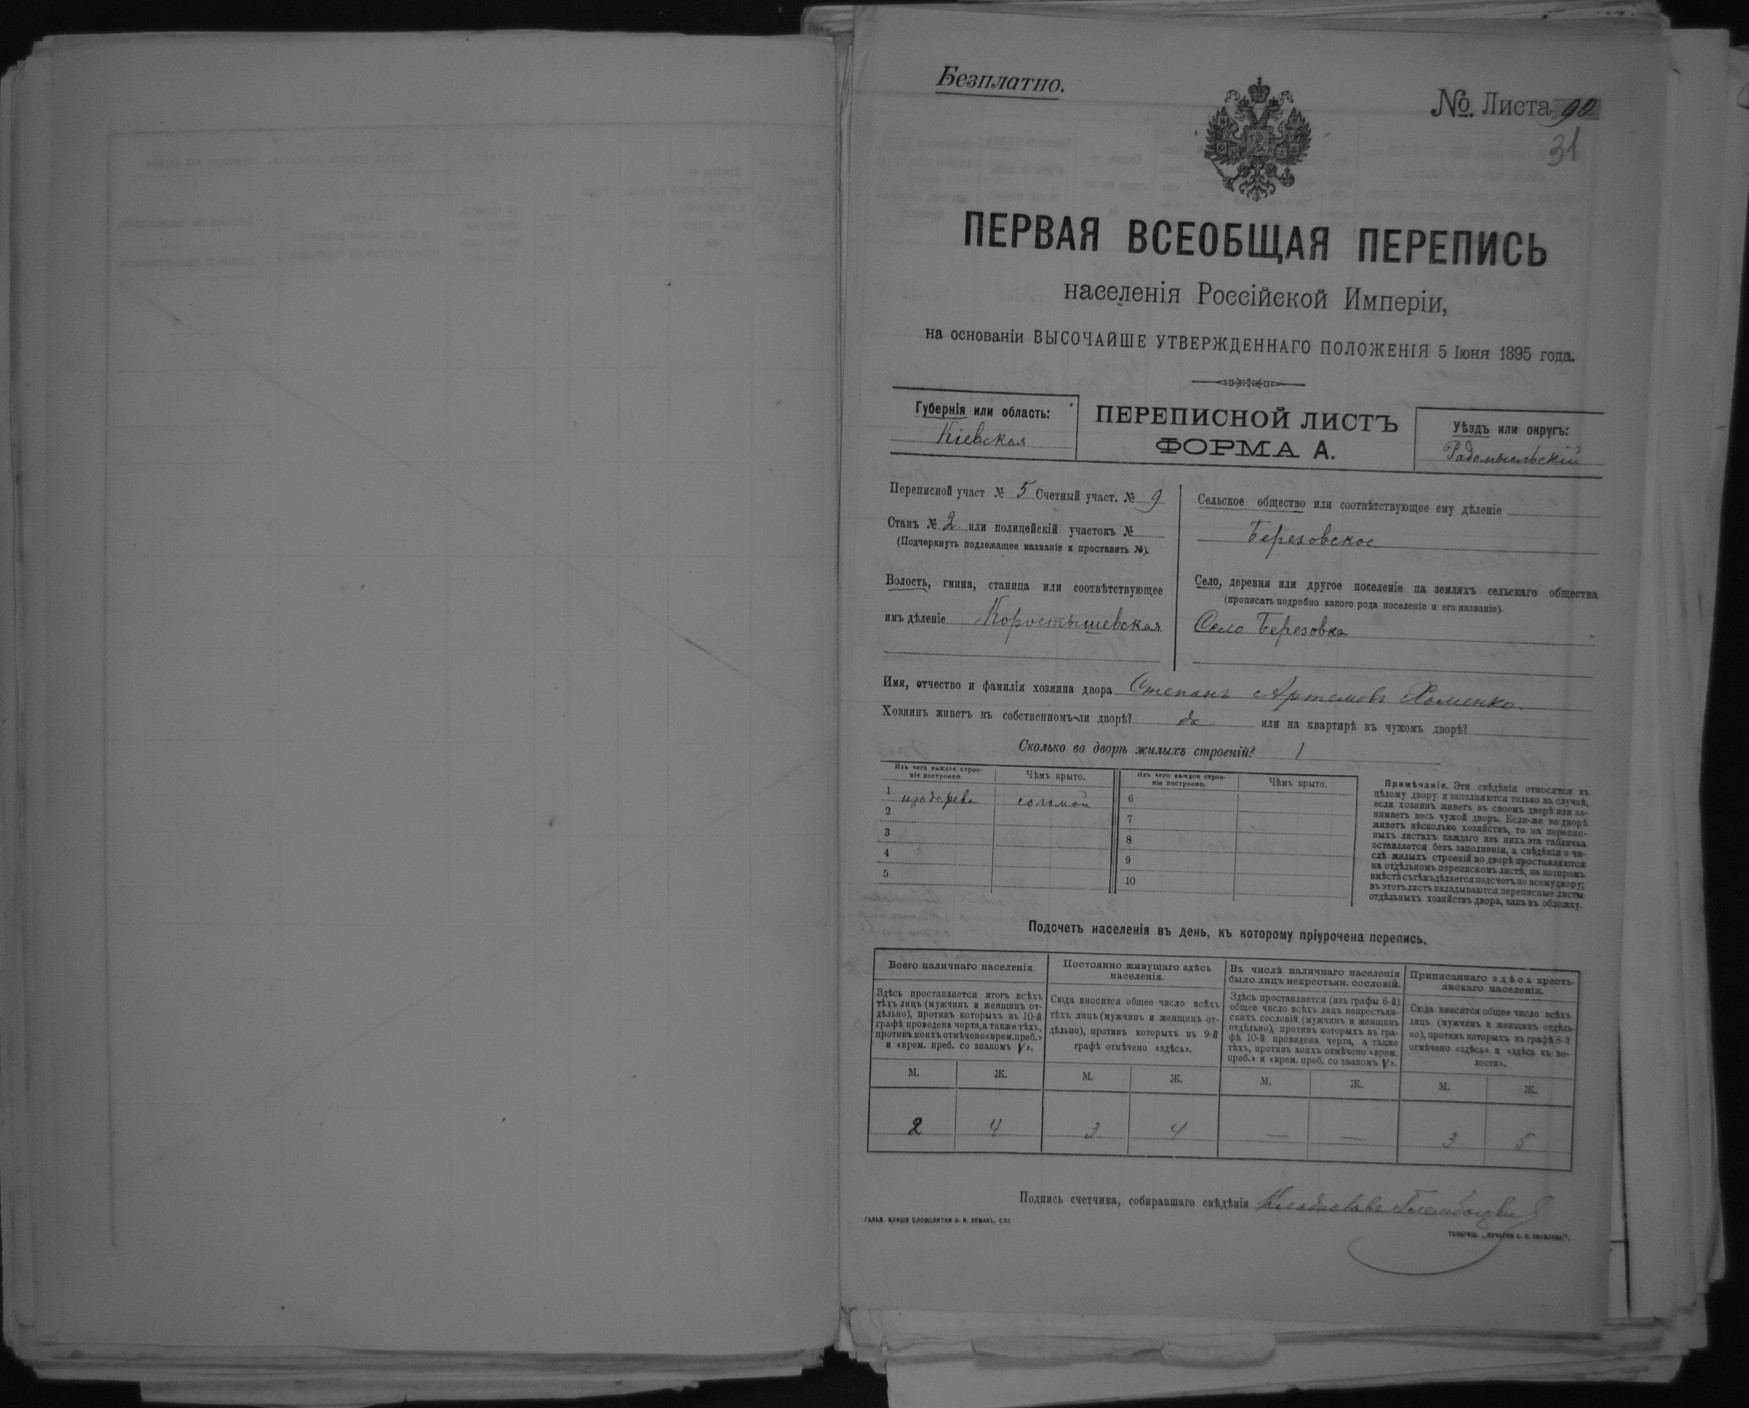 Безплатно.
№. Листа 90
31
ПЕРВАЯ ВСЕОБЩАЯ ПЕРЕПИСЬ
населенія Россійской Имперіи,
на основаніи ВЫСОЧАЙШЕ УТВЕРЖДЕННАГО ПОЛОЖЕНІЯ 5 Іюня 1895 года.
Губернія или область:
Кіевская
ПЕРЕПИСНОЙ ЛИСТЪ
ФОРМА А.
Уѣздъ или округъ:
Радомысльскій
Переписной участ № 5 Счетный участ. № 9
Станъ № 2 или полицейскій участокъ №
(Подчеркнуть подлежащее названіе и проставить №).
Волость, гмина, станица или соотвѣтствующее
имъ дѣленіе Коростышевская
Сельское общество или соотвѣтствующее ему дѣленіе
Березовское
Село, деревня или другое поселеніе на земляхъ сельскаго общества
(прописать подробно какого рода поселеніе и его названіе).
Село Березовка
Имя, отчество и фамилія хозяина двора Степанъ Артемовъ Хоменко
Хозяинъ живетъ въ собственномъ-ли дворѣ? да или на квартирѣ въ чужомъ дворѣ?
Сколько во дворѣ жилыхъ строеній? 1
Изъ чего каждое строе-
ніе построено.
Чѣмъ крыто.
Изъ чего каждое строе-
ніе построено.
Чѣмъ крыто.
1 изъ дерева соломой
2
3
4
5
6
7
8
9
10
Примѣчанія. Эти свѣдѣнія относятся къ
цѣлому двору и заполняются только въ случаѣ,
если хозяинъ живетъ въ своемъ дворѣ или за-
нимаетъ весь чужой дворъ. Если-же во дворѣ
живетъ нѣсколько хозяйствъ, то на перепис-
ныхъ листахъ каждаго изъ нихъ эта табличка
оставляется безъ заполненія, а свѣдѣнія о чи-
слѣ жилыхъ строеній во дворѣ проставляются
на отдѣльномъ переписномъ листѣ, на которомъ
вмѣстѣ съ тѣмъ дѣлается подсчетъ по всему двору;
въ этотъ листъ вкладываются переписные листы
отдѣльныхъ хозяйствъ двора, какъ въ обложку.
Подсчетъ населенія въ день, къ которому пріурочена перепись.
Всего наличнаго населенія.
Здѣсь проставляется итогъ всѣхъ
тѣхъ лицъ (мужчинъ и женщинъ от-
дѣльно), противъ которыхъ въ 10-й
графѣ проведена черта, а также тѣхъ,
противъ коихъ отмѣчено «врем. преб.»
и «врем. преб. со знакомъ V».
Постоянно живущаго здѣсь
населенія.
Сюда вносится общее число всѣхъ
тѣхъ лицъ (мужчинъ и женщинъ от-
дѣльно), противъ которыхъ въ 9-й
графѣ отмѣчено «здѣсь».
Въ числѣ наличнаго населенія
было лицъ некрестьян. сословій.
Здѣсь проставляется (изъ графы 6-й)
общее число всѣхъ лицъ некрестьян-
скихъ сословій (мужчинъ и женщинъ
отдѣльно), противъ которыхъ въ гра-
фѣ 10-й проведена черта, а также
тѣхъ, противъ коихъ отмѣчено «врем.
преб.» и «врем. преб. со знакомъ V».
Приписаннаго здѣсь кресть-
янскаго населенія.
Сюда вносится общее число всѣхъ
лицъ (мужчинъ и женщинъ отдѣль-
но), противъ которыхъ въ графѣ 8-й
отмѣчено «здѣсь» и «здѣсь къ во-
лости».
М. Ж. М. Ж. М. Ж. М. Ж.
2 4 3 4 — — 3 5
Подпись счетчика, собиравшаго свѣдѣнія
ГАЛЬВ. КЛИШЕ СЛОВОЛИТНИ О. И. ЛЕМАНЪ, СПБ.